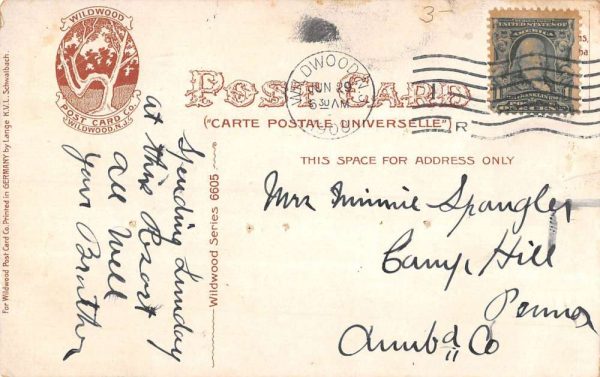 3-
WILDWOOD
POST CARD CO.
WILDWOOD, N.J.
WILDWOOD N.J.
JUN 29
5 30 AM
1909
POST CARD
("CARTE POSTALE UNIVERSELLE")
R
THIS SPACE FOR ADDRESS ONLY
Mrs Minnie Spangler
Camp Hill
Penna
Cumbd Co
Spending Sunday
at this Resort
all well
your Brother
Wildwood Series 6605
For Wildwood Post Card Co. Printed in GERMANY by Lange K.V.L. Schwalbach.